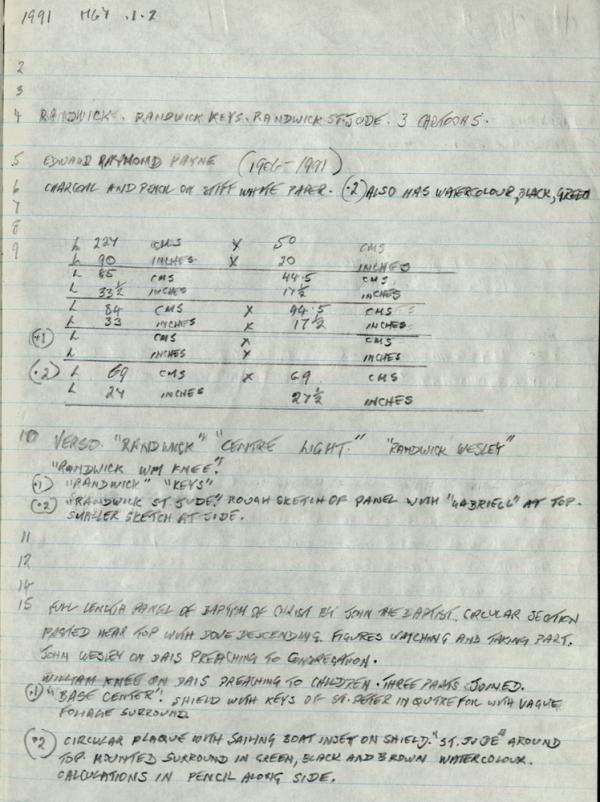 1991 MGY .1.2
2
3
4 RANDWICK. RANDWICK KEYS. RANDWICK ST. JUDE. 3 CARTOONS.
5 EDWARD RAYMOND PAYNE (1906-1991)
6 CHARCOAL AND PENCIL ON STIFF WHITE PAPER. (.2) ALSO HAS WATERCOLOUR, BLACK, GREEN
7
8
9 L 227 CMS X 50 CMS
L 90 INCHES X 20 INCHES
L 85 CMS 44.5 CMS
L 33½ INCHES 17½ INCHES
L 84 CMS X 44.5 CMS
L 33 INCHES X 17½ INCHES
(.1) L CMS X CMS
L INCHES X INCHES
(.2) L 69 CMS X 69 CMS
L 27 INCHES 27½ INCHES
10 VERSO. "RANDWICK" "CENTRE LIGHT." "RANDWICK WESLEY"
"RANDWICK WM KNEE."
(.1) "RANDWICK" "KEYS"
(.2) "RANDWICK ST JUDE." ROUGH SKETCH OF PANEL WITH "GABRIELL" AT TOP.
SMALLER SKETCH AT SIDE.
11
12
14
15 FULL LENGTH PANEL OF BAPTISM OF CHRIST BY JOHN THE BAPTIST. CIRCULAR SECTION
PASTED NEAR TOP WITH DOVE DESCENDING. FIGURES WATCHING AND TAKING PART.
JOHN WESLEY ON DAIS PREACHING TO CONGREGATION.
WILLIAM KNEE ON DAIS PREACHING TO CHILDREN. THREE PARTS JOINED.
(.1) "BASE CENTER". SHIELD WITH KEYS OF ST. PETER IN QUTREFOIL WITH VAGUE
FOLIAGE SURROUND.
(.2) CIRCULAR PLAQUE WITH SAILING BOAT INSET ON SHIELD. "ST. JUDE" AROUND
TOP. MOUNTED SURROUND IN GREEN, BLACK AND BROWN WATERCOLOUR.
CALCULATIONS IN PENCIL ALONG SIDE.